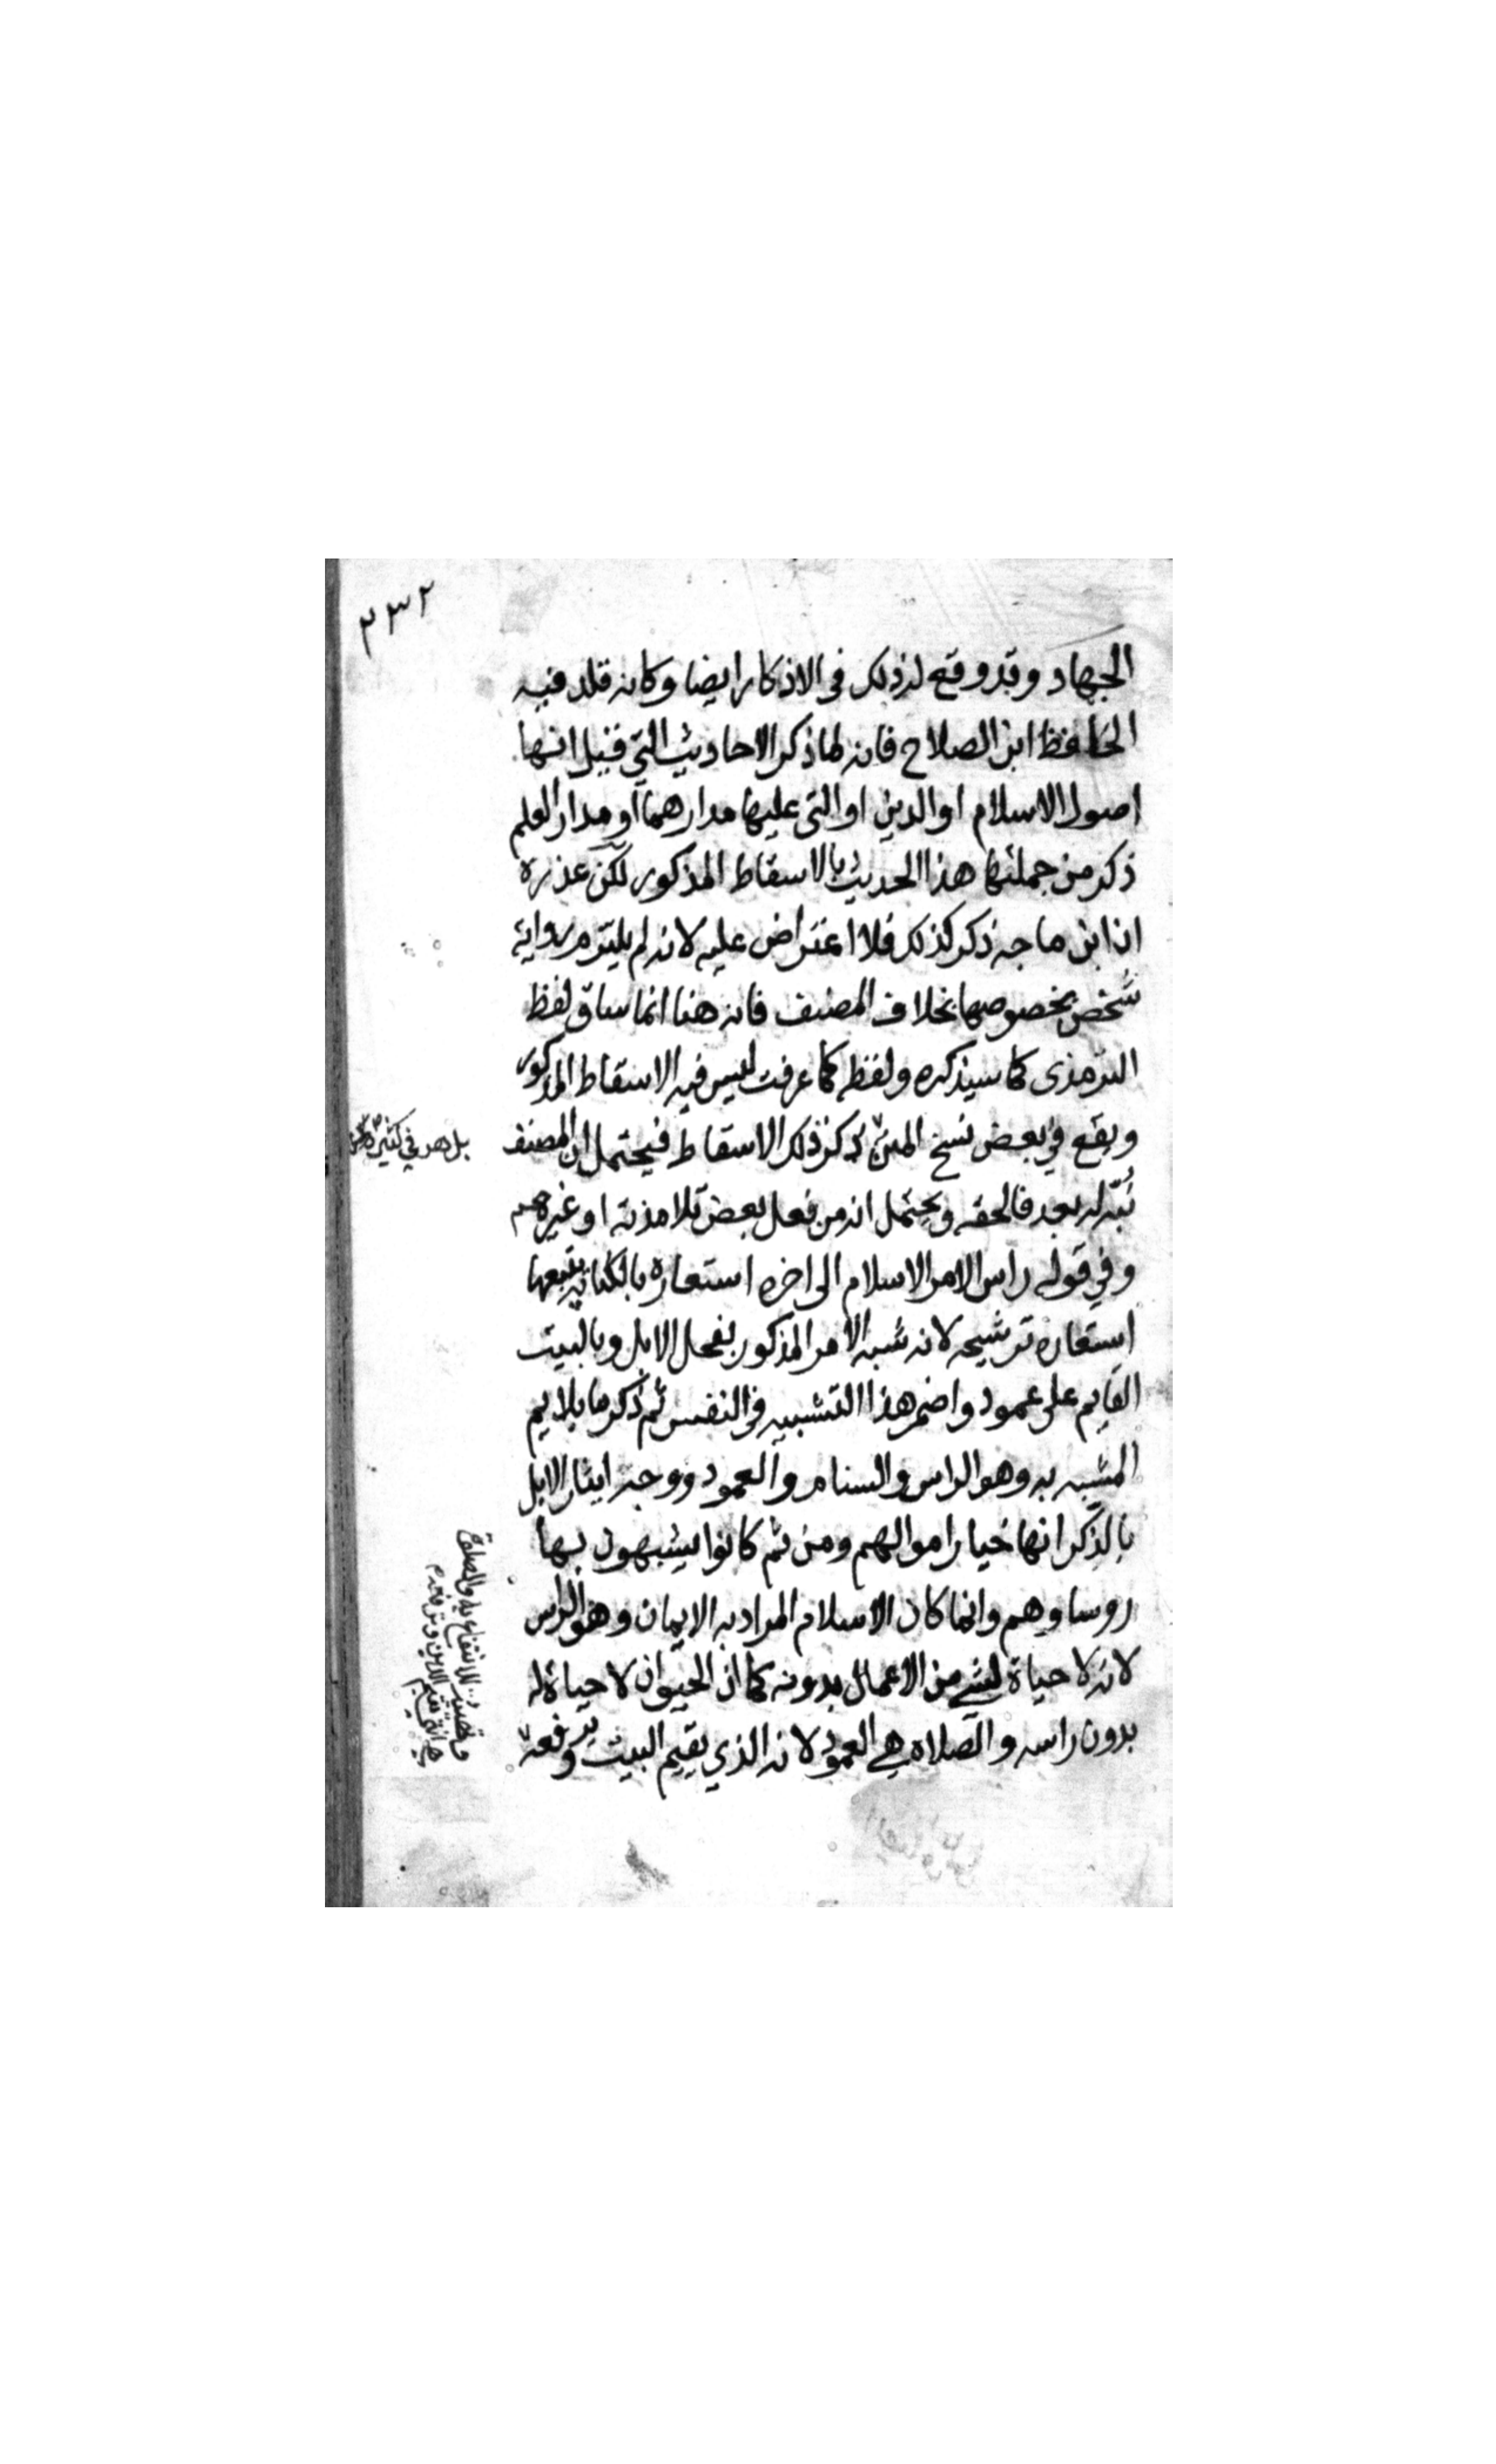 ٢٣٢
الجهاد وقد وقع له ذلك في الاذكار ايضا وكانه قلد فيه
الحافظ ابن الصلاح فانه لما ذكر الاحاديث التي قيل انها
اصول الاسلام او الدين او التي عليها مدارهما او مدار العلم
ذكر من جملتها هذا الحديث بالاسقاط المذكور لكن عذره
ان ابن ماجه ذكر كذلك فلا اعتراض عليه لانه لم يلتزم رواية
شخص بخصوصها بخلاف المصنف فانه هنا انما ساق لفظ
الترمذي كما سيذكره ولفظه كما عرفت ليس فيه الاسقاط المذكور
ويقع في بعض نسخ المتن ذكر ذلك الاسقاط فيحتمل ان المصنف
بل هو في كثير
نُبّه له بعد فالحقه ويحتمل انه من فعل بعض تلامذته او غيرهم
وفي قوله راس الامر الاسلام الى اخره استعارة بالكناية يتبعها
استعارة ترشيحه لانه شبه الامر المذكور بفحل الابل وبالبيت
القايم على عمود واضمر هذا التشبيه في النفس ثم ذكر ما يلايم
المشبه به وهو الراس والسنام والعمود ووجه ايثار الابل
بالذكر انها خيار اموالهم ومن ثم كانوا يشبهون بها
روساوهم وانما كان الاسلام المراد به الايمان وهو الراس
لانه لا حياة لشي من الاعمال بدونه كما ان الحيوان لا حياة له
بدون راسه والصلاة هي العمود لانه الذي يقيم البيت ويرفعه
للانتفاع به والصلاة
هي التي تقيم الدين وترفعه